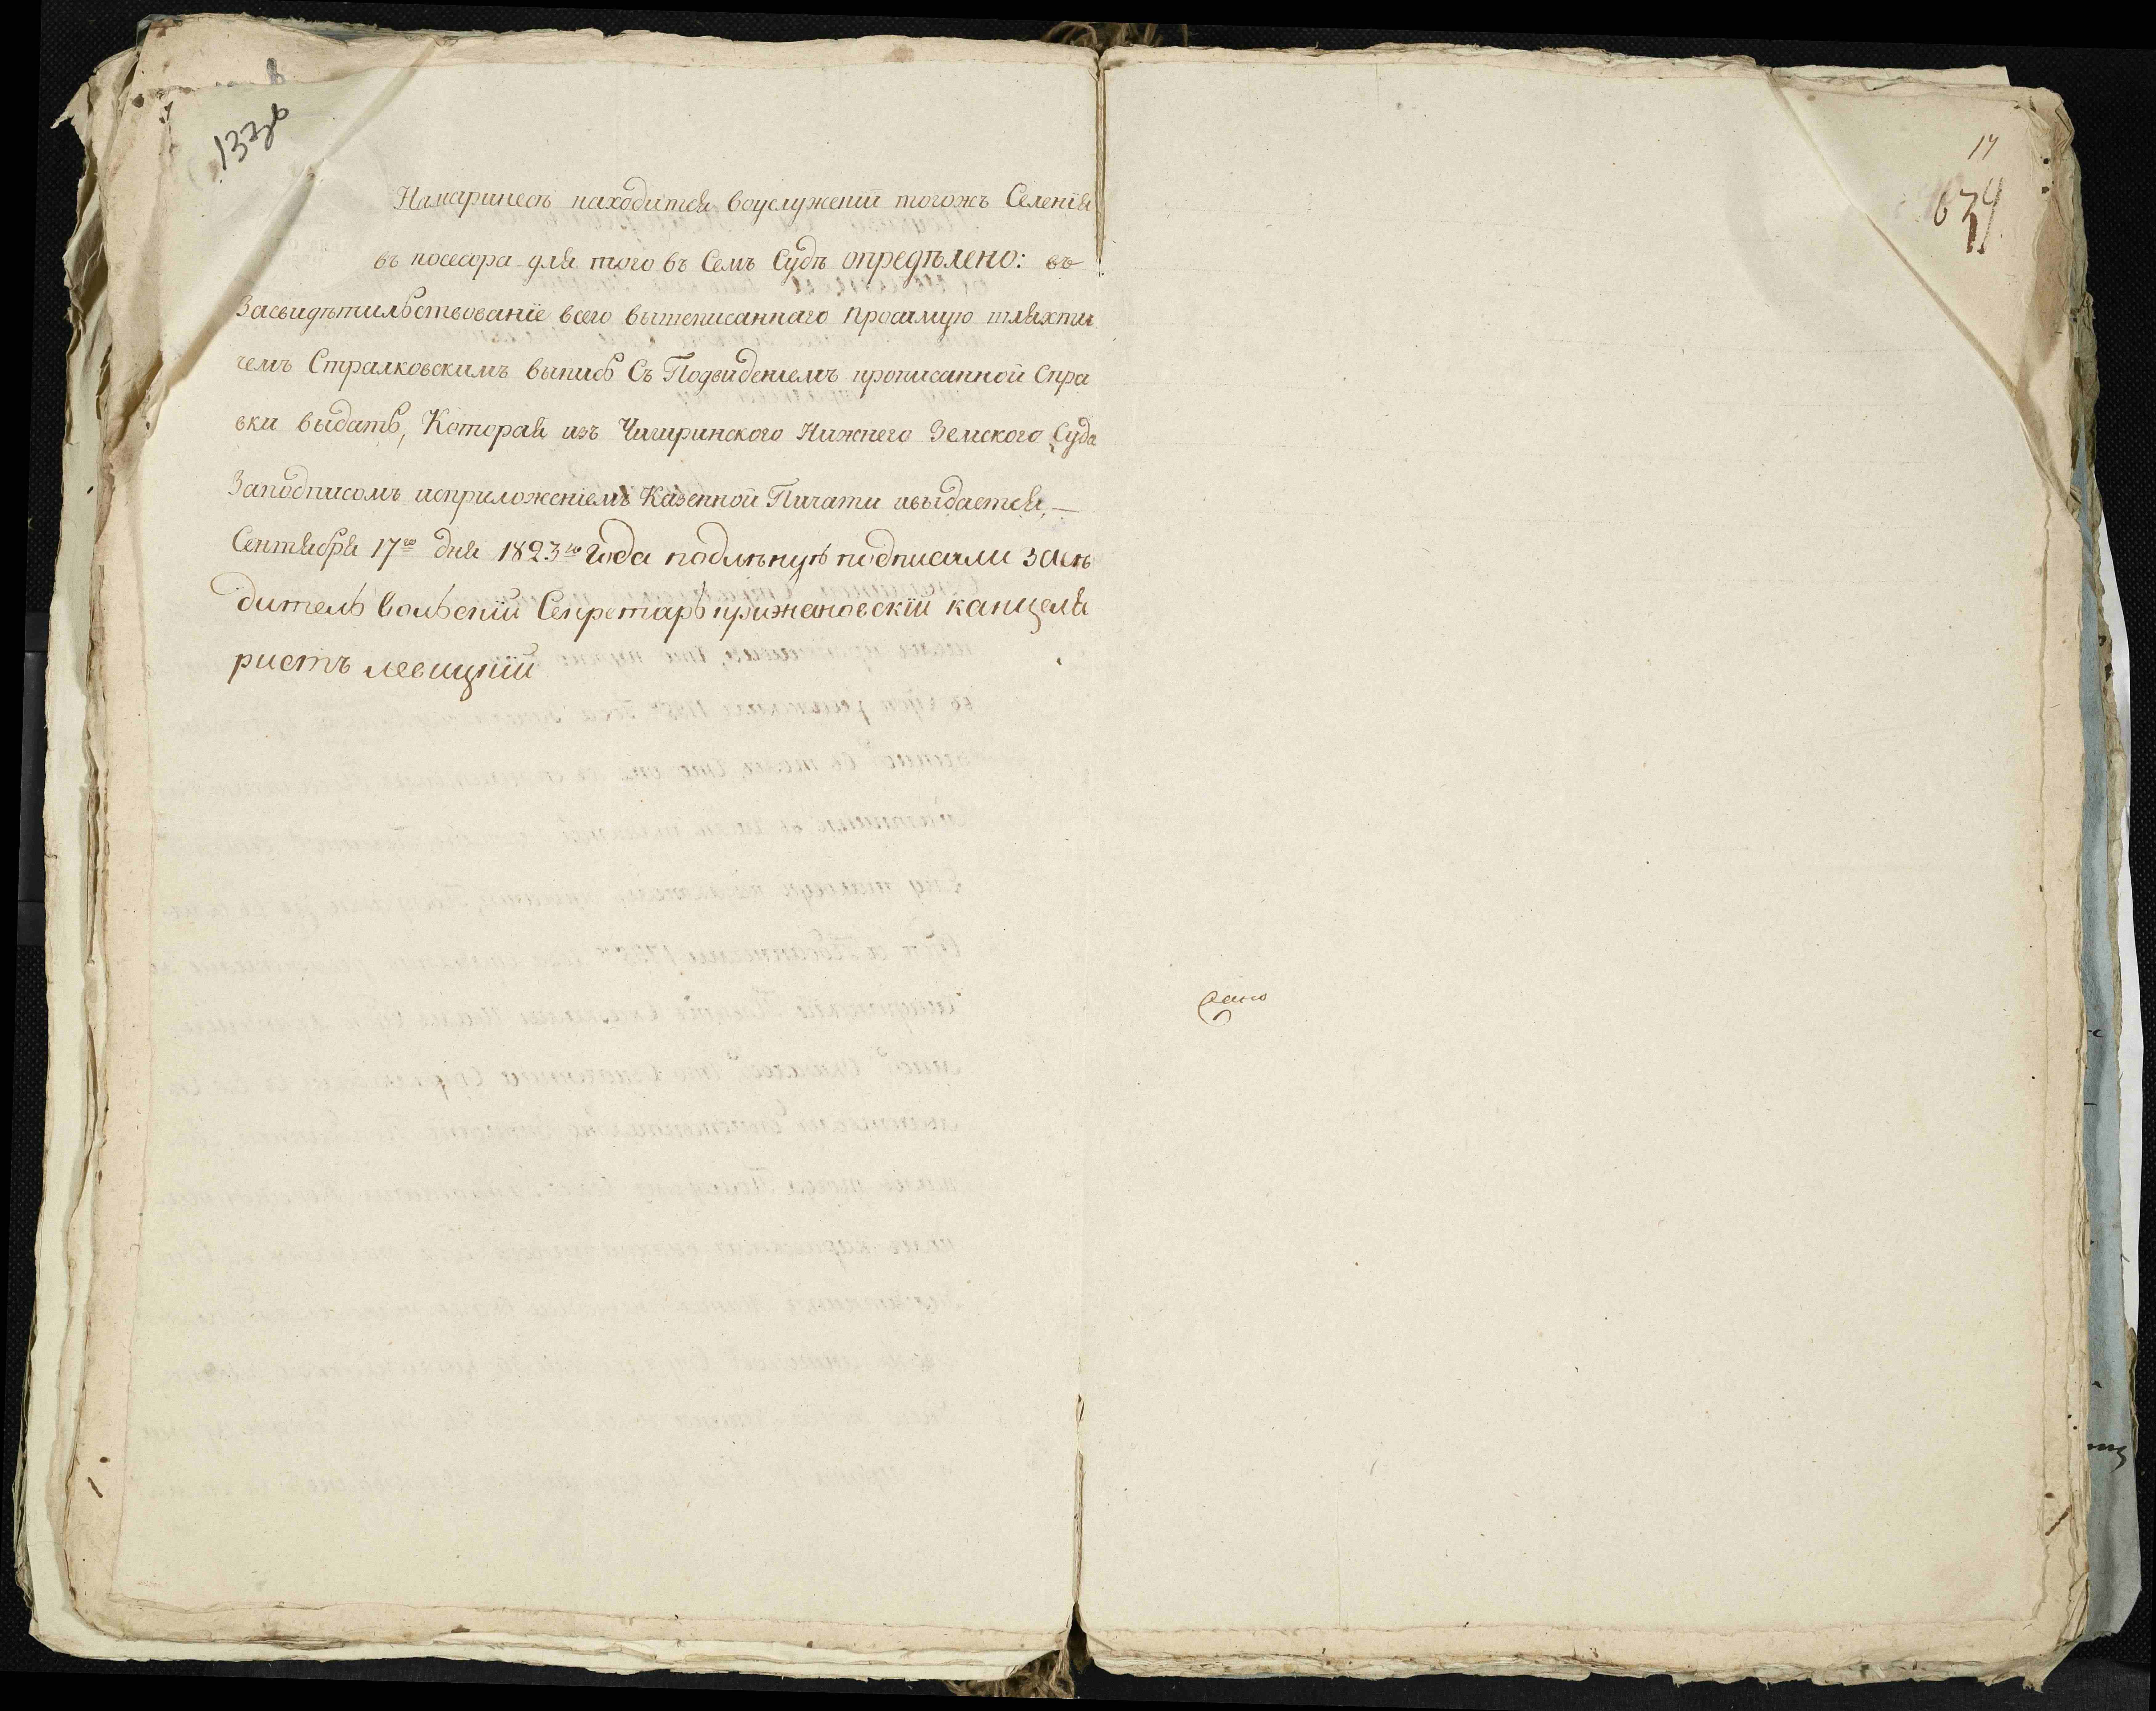 133об
находится воуслужениї тогожъ Селенїя
въ посесора для того въ Семъ Судѣ опредѣлено: въ
Засвидѣтильствованїе всего вышеписаннаго просимую шляхти
чемъ Стралковскимъ выпись Съ Подвидениемъ прописанной Спра
вки выдать, Которая изъ Чигиринского Нижнего Земского Суда
Заподписомъ исприложенїемъ Казенной Пичати ивыдается,—
Сентября 17го дня 1823го Года подлѣную подписали засѣ
дитель вольскїй Секретарь крижановскїй канцеля
ристъ левицкїй
17
634